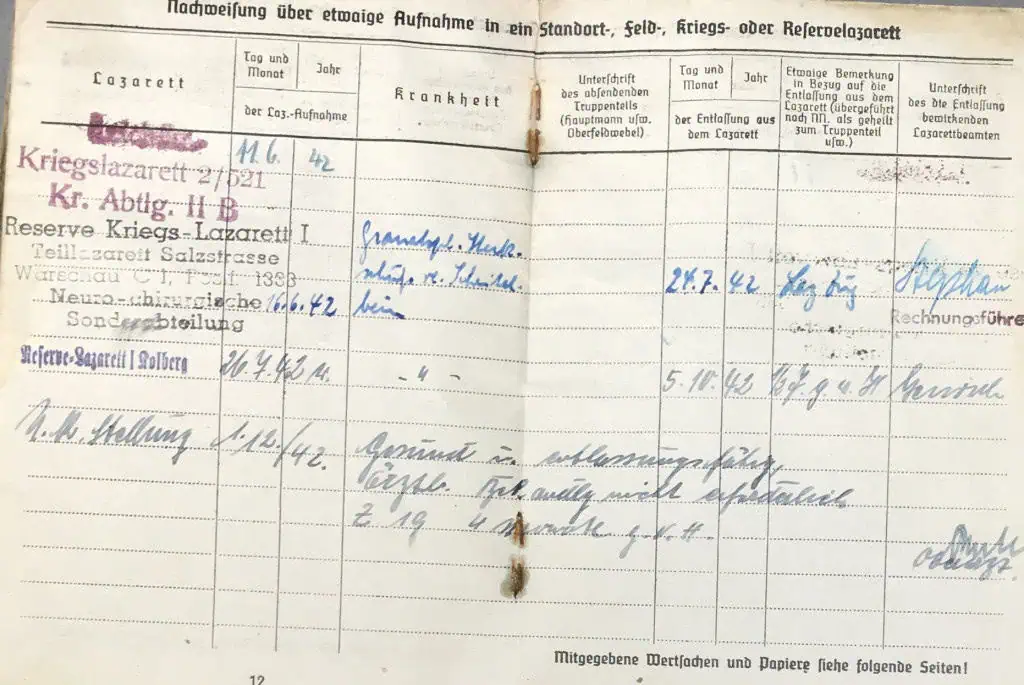 Nachweisung über etwaige Aufnahme in ein Standort-, Feld-, Kriegs- oder Reservelazarett
Lazarett
Tag und Monat
Jahr
der Laz.-Aufnahme
Krankheit
Unterschrift
des absendenden
Truppenteils
(Hauptmann usw.
Oberfeldwebel)
Tag und Monat
Jahr
der Entlassung aus
dem Lazarett
Etwaige Bemerkung
in Bezug auf die
Entlassung aus dem
Lazarett (übergeführt
nach NN. als geheilt
zum Truppenteil
usw.)
Unterschrift
des die Entlassung
bewirkenden
Lazarettbeamten
Kriegslazarett 2/521 11.6. 42
Kr. Abtlg. II B
Reserve Kriegs-Lazarett I
Teillazarett Salzstrasse
Warschau C 1, Postf. 1333
Neuro-chirurgische 16.6.42
Sonderabteilung
Granatspl. Steck-
schuß re. Scheitel-
bein
24.7. 42 Laz Zug Stephan
Rechnungsführer
Reserve-Lazarett I Kolberg 26.7.42 - " - 5.10. 42
Stellung 1.12./42. Gesund u. entlassungsfähig,
ärztl. nicht erforderlich
Z 19 4 Monate g.v.H.
Mitgegebene Wertsachen und Papiere siehe folgende Seiten!
12